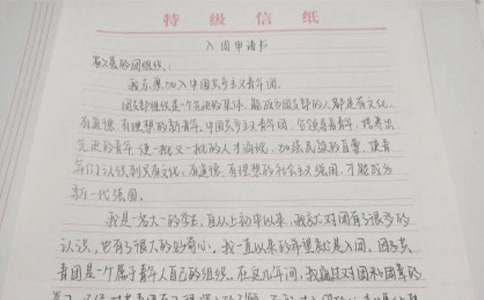 特级信纸
入团申请书
敬爱的团组织:
我志愿加入中国共产主义青年团。
团支部组织是一个先进的集体,能成为团支部的人都是有文化、
有道德、有理想的新青年。中国共产主义青年团,它领导着青年,培养出
先进的青年,使一批又一批的人才涌现,加强民族的力量,使青
年们认识到只有文化,有道德,有理想的社会主义强国,才能成为
新一代强国。
我是一名大一的学生,自从上初中以来,我就对团有了很多的
认识,也有了很大的好奇心。我一直以来的希望就是入团。团
青团是一个属于青年人自己的组织。在这几年间,我通过对团和团章的